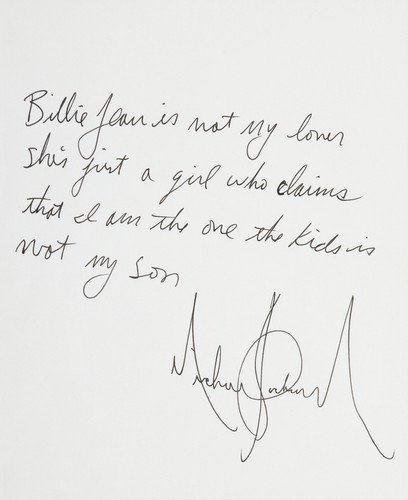 Billie Jean is not my lover
She's just a girl who claims
that I am the one the Kids is
not my son
Michael Jackson